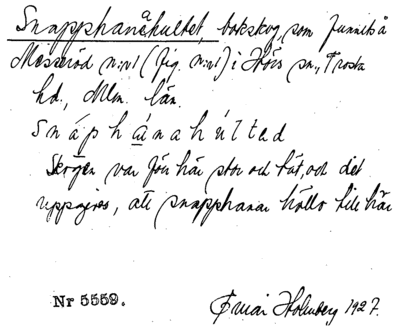 Snapphanåhultet, bokskog, som funnits å
Messeröd n:o1 (fig. n:o1) i Hörs sn., Frosta
hd., Mlm. län.
Snáphánahúlted
Skogen var förr här stor och tät, och det
uppgives, att snapphanar höllo till här
Nr 5559.
Holmberg 1927.